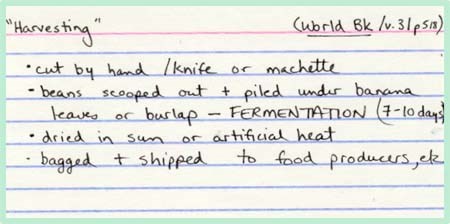 "Harvesting" (World Bk /v.3/p518)
• cut by hand /knife or machette
• beans scooped out + piled under banana
leaves or burlap – FERMENTATION (7-10 days)
• dried in sun or artificial heat
• bagged + shipped to food producers, etc